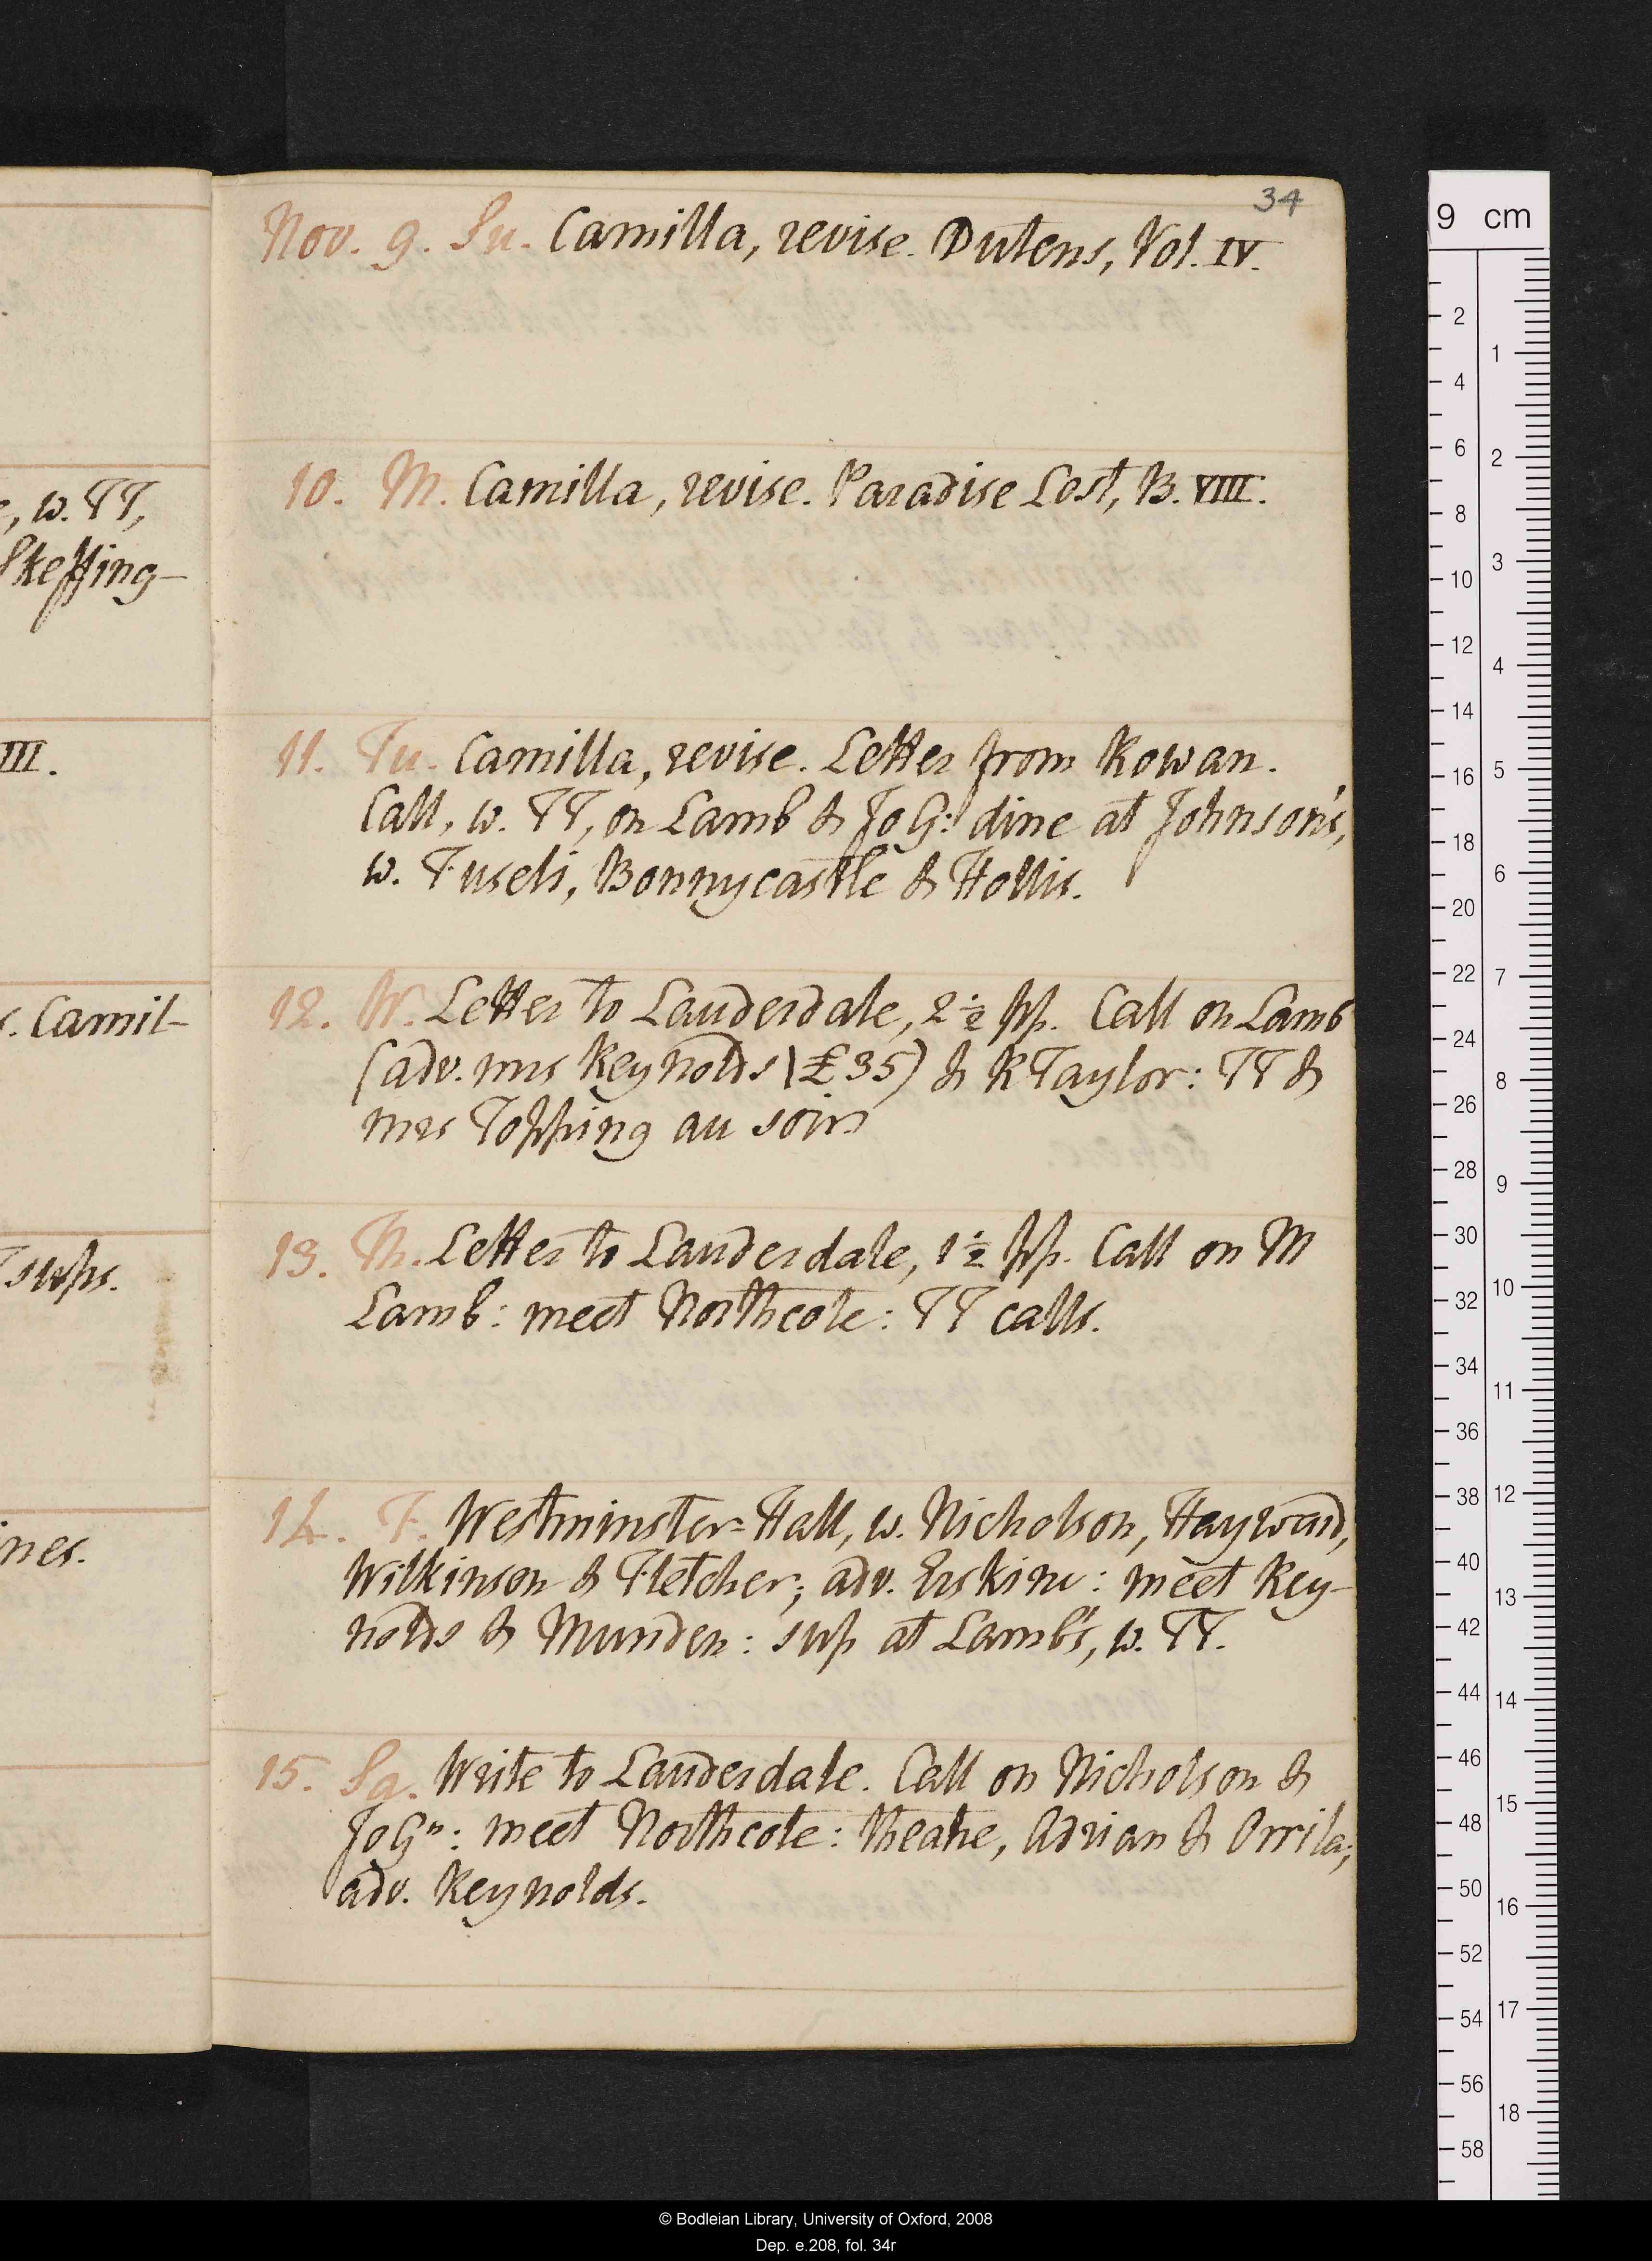 34
Nov. 9. Su. Camilla, revise. Dutens, Vol. IV.
10. M. Camilla, revise. Paradise Lost, B. VIII.
11. Tu. Camilla, revise. Letter from Rowan.
Call, w. TT, on Lamb & Jo G: dine at Johnson's,
w. Fuseli, Bonnycastle & Hollis.
12. W. Letter to Lauderdale, 2 1/2 pp. Call on Lamb
(adv. mrs Reynolds \ £35) & R Taylor: TT &
mrs Topping au soir
13. Th. Letter to Lauderdale, 1 1/2 pp. Call on M
Lamb: meet Northcote: TT calls.
14. F. Westminster=Hall, w. Nicholson, Hayward,
Wilkinson & Fletcher; adv. Erskine: meet Rey-
nolds & Munden: sup at Lamb's, w. TT.
15. Sa. Write to Lauderdale. Call on Nicholson &
Jo Gn: meet Northcote: theatre, Adrian & Orrila;
adv. Reynolds.
, w. TT,
Skeffing-
III.
. Camil-
T sups.
nes.
9 cm
2
4
6
8
10
12
14
16
18
20
22
24
26
28
30
32
34
36
38
40
42
44
46
48
50
52
54
56
58
1
2
3
4
5
6
7
8
9
10
11
12
13
14
15
16
17
18
© Bodleian Library, University of Oxford, 2008
Dep. e.208, fol. 34r